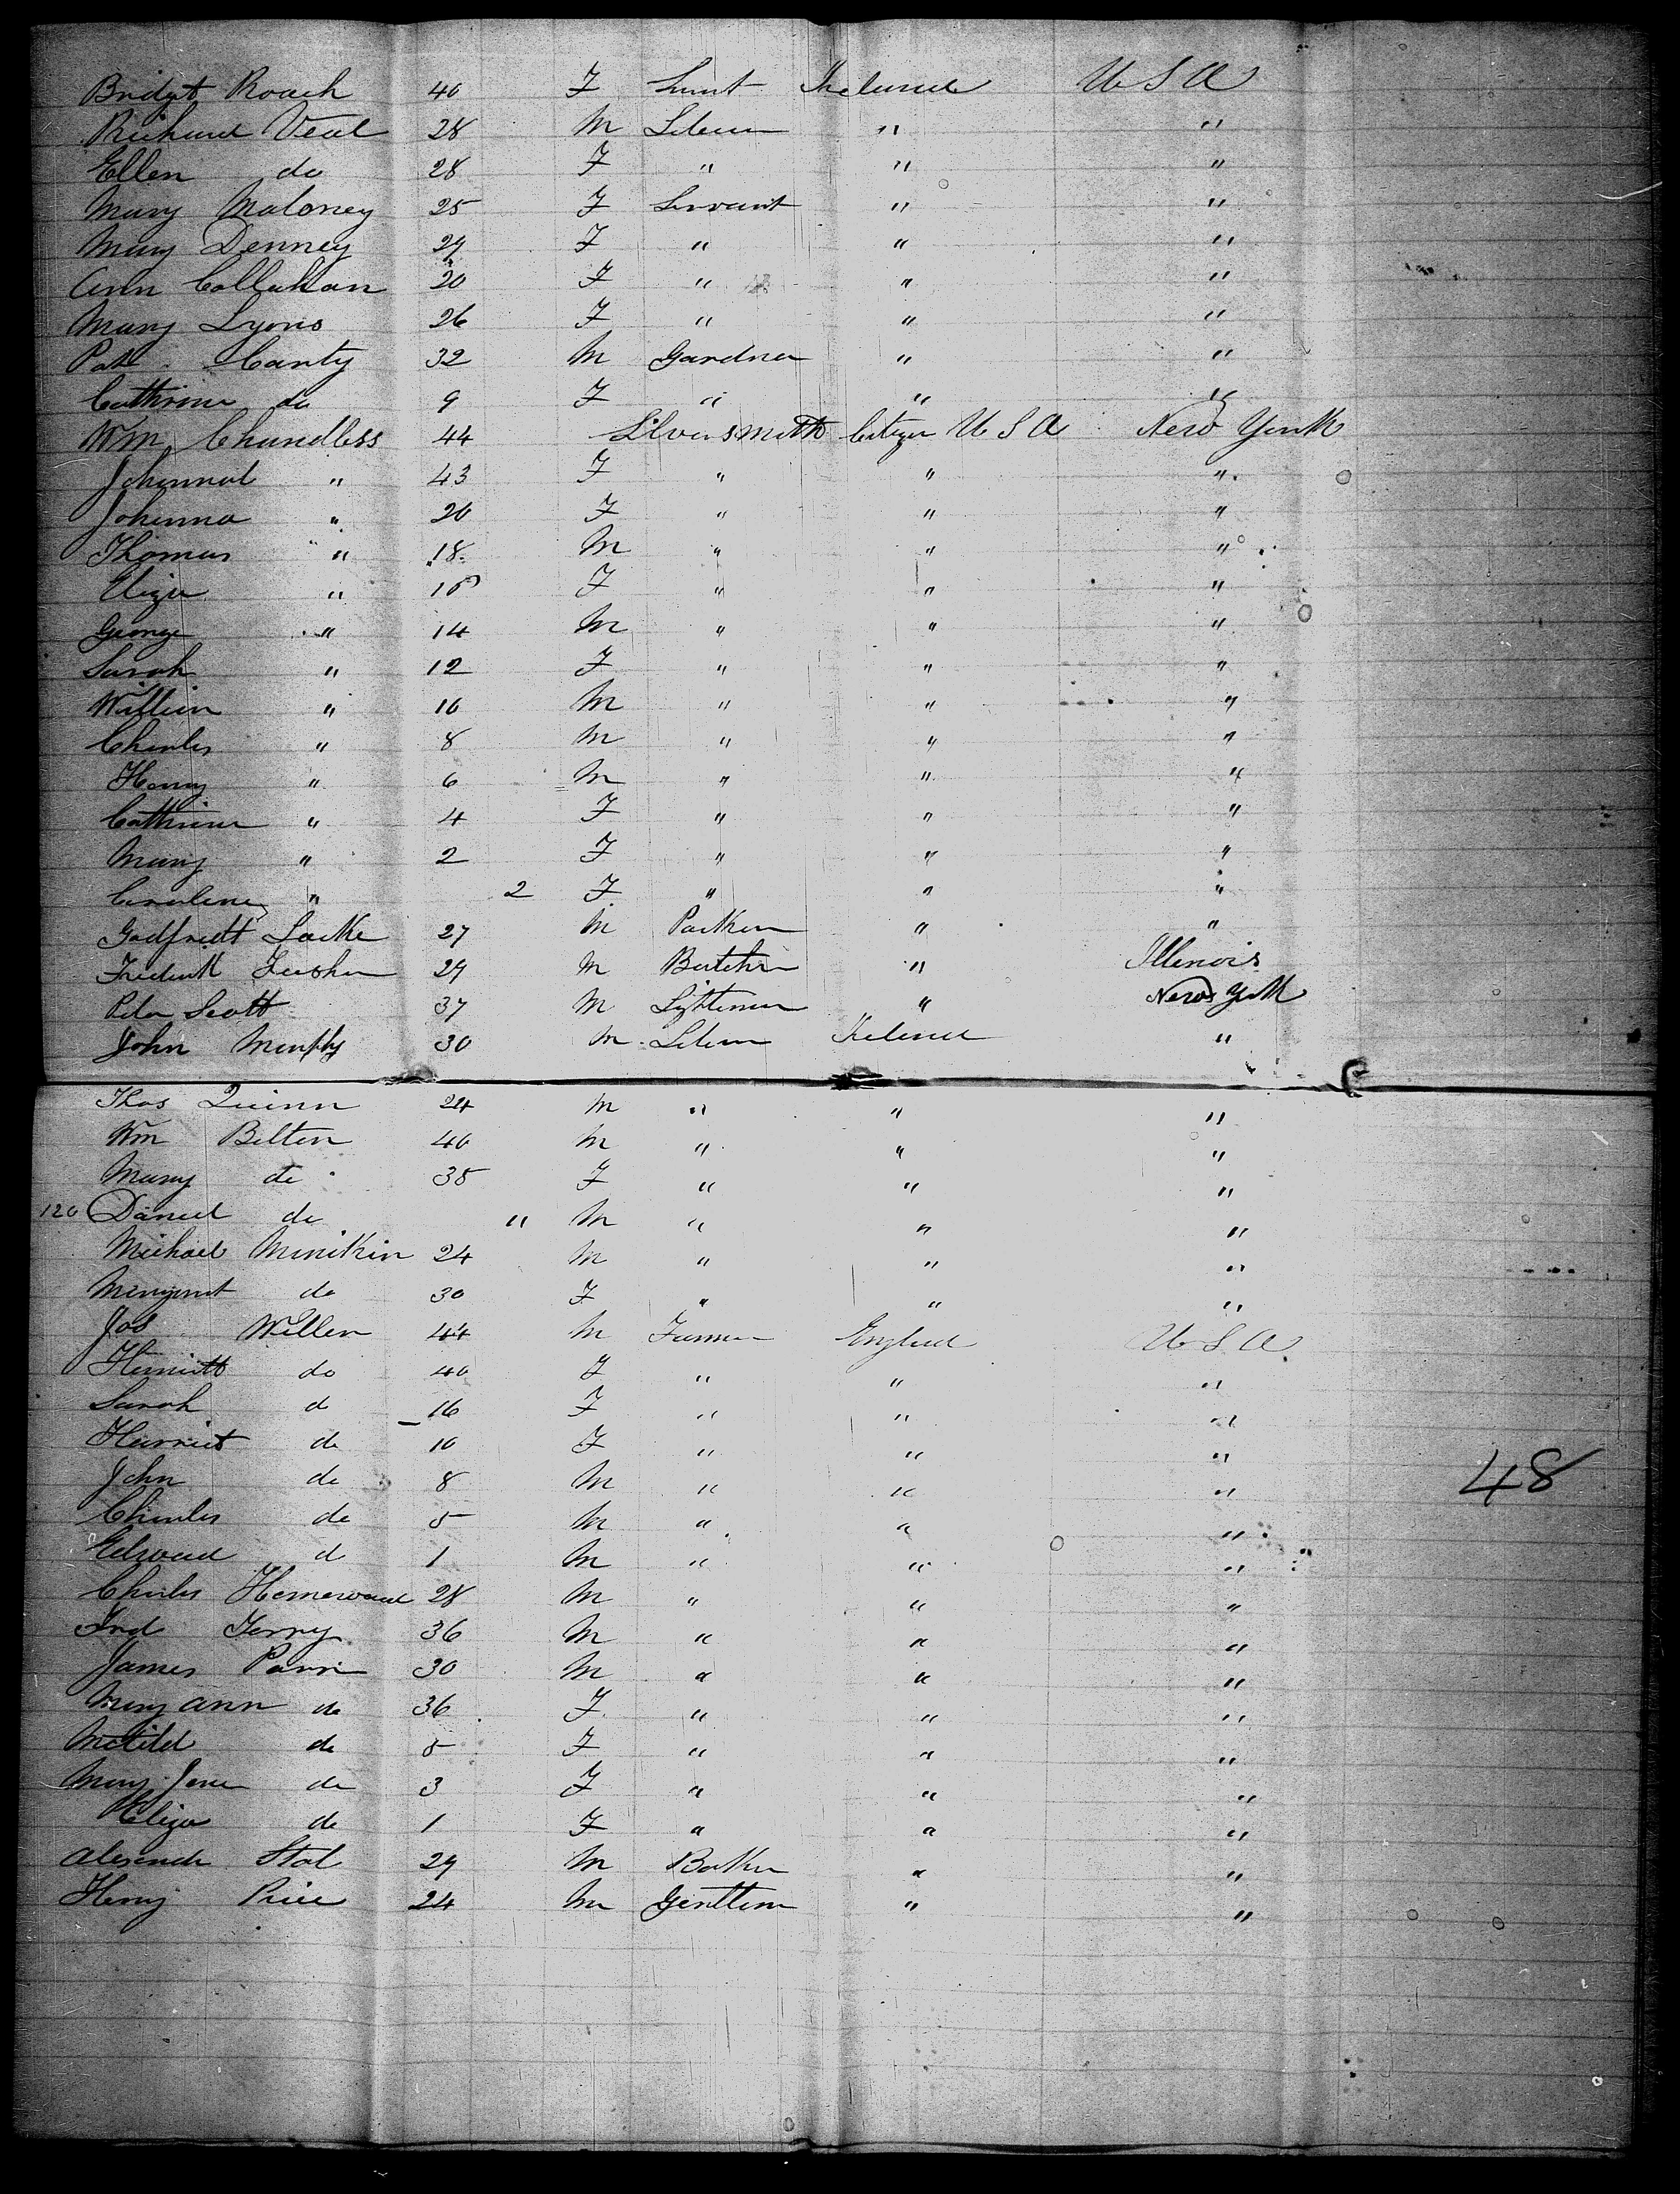 Bridget Roach 40 F Ireland U S A
Richard Veal 28 M " "
Ellen do 28 F " " "
Mary Maloney 25 F Servant " "
Mary Denney 29 F " " "
Ann Collahan 20 F " " "
Mary Lyons 26 F " " "
Pat Canty 32 M Gardner " "
Cathrine do 9 F " " "
Wm Chandless 44 Silversmith Citizen U S A New York
" 43 F " " "
Johanna " 20 F " " "
Thomas " 18 M " " "
Eliza " F " " "
George " 14 M " " "
Sarah " 12 F " " "
William " 10 M " " "
Charles " 8 M " " "
Henry " 6 M " " "
Cathrine " 4 F " " "
Mary " 2 F " " "
Caroline " 2 F " " "
Godfriedt Locke 27 M " "
29 M Butcher " Illinois
Peter Scott 37 M " New York
John Murphy 30 M Ireland "
Thos Quinn 24 M " " "
Wm Bilten 40 M " " "
Mary do 35 F " " "
120 Daniel do " M " " "
Michael Minikin 24 M " " "
Margaret do 30 F " " "
Jos Willen 44 M Farmer England U S A
do 40 F " " "
Sarah d 16 F " " "
Harriet do 10 F " " "
John do 8 M " " "
Charles do 5 M " " "
Edward d 1 M " " "
48
Charles 28 M " " "
36 M " " "
James 30 M " " "
Mary Ann do 36 F " " "
Matild do 5 F " " "
Mary Jane do 3 F " " "
Eliza do 1 F " " "
29 M Baker " "
Henry Price 24 M " "